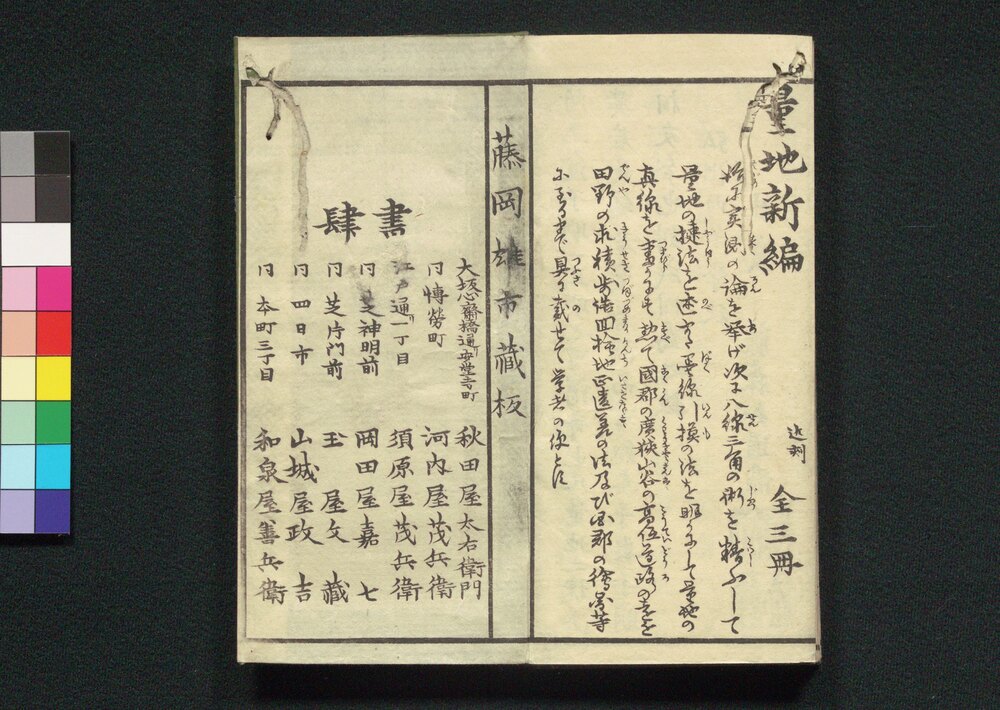 量地新編 近刻 全三冊
始に実測の論を挙げ次に八線三角の術を精ふして
量地の捷法を述ぶる墨線引摸の法を明かにして量地の
真線を畫かにも熟て國郡の廣狭山谷の高低道路の遠近
田野の求積歩倍四檢地正遠差の法及び国郡の繪圖等
に至るまで具に載せて学者の便とす
藤岡雄市藏板
書肆
大坂心齋橋通安堂寺町 秋田屋太右衛門
同 博勞町 河内屋茂兵衛
江戸通一丁目 須原屋茂兵衛
同 芝神明前 岡田屋嘉七
同 芝片門前 玉屋文藏
同 四日市 山城屋政吉
同 本町三丁目 和泉屋善兵衛